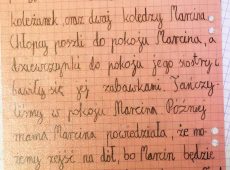 koleżanek, oraz dwaj koledzy Marcina.
Chłopcy poszli do pokoju Marcina, a
dziewczynki do pokoju jego siostry i
bawiły się jej zabawkami. Tańczy-
liśmy w pokoju Marcina. Później
mama Marcina powiedziała, że mo-
żemy zejść na dół, bo Marcin będzie